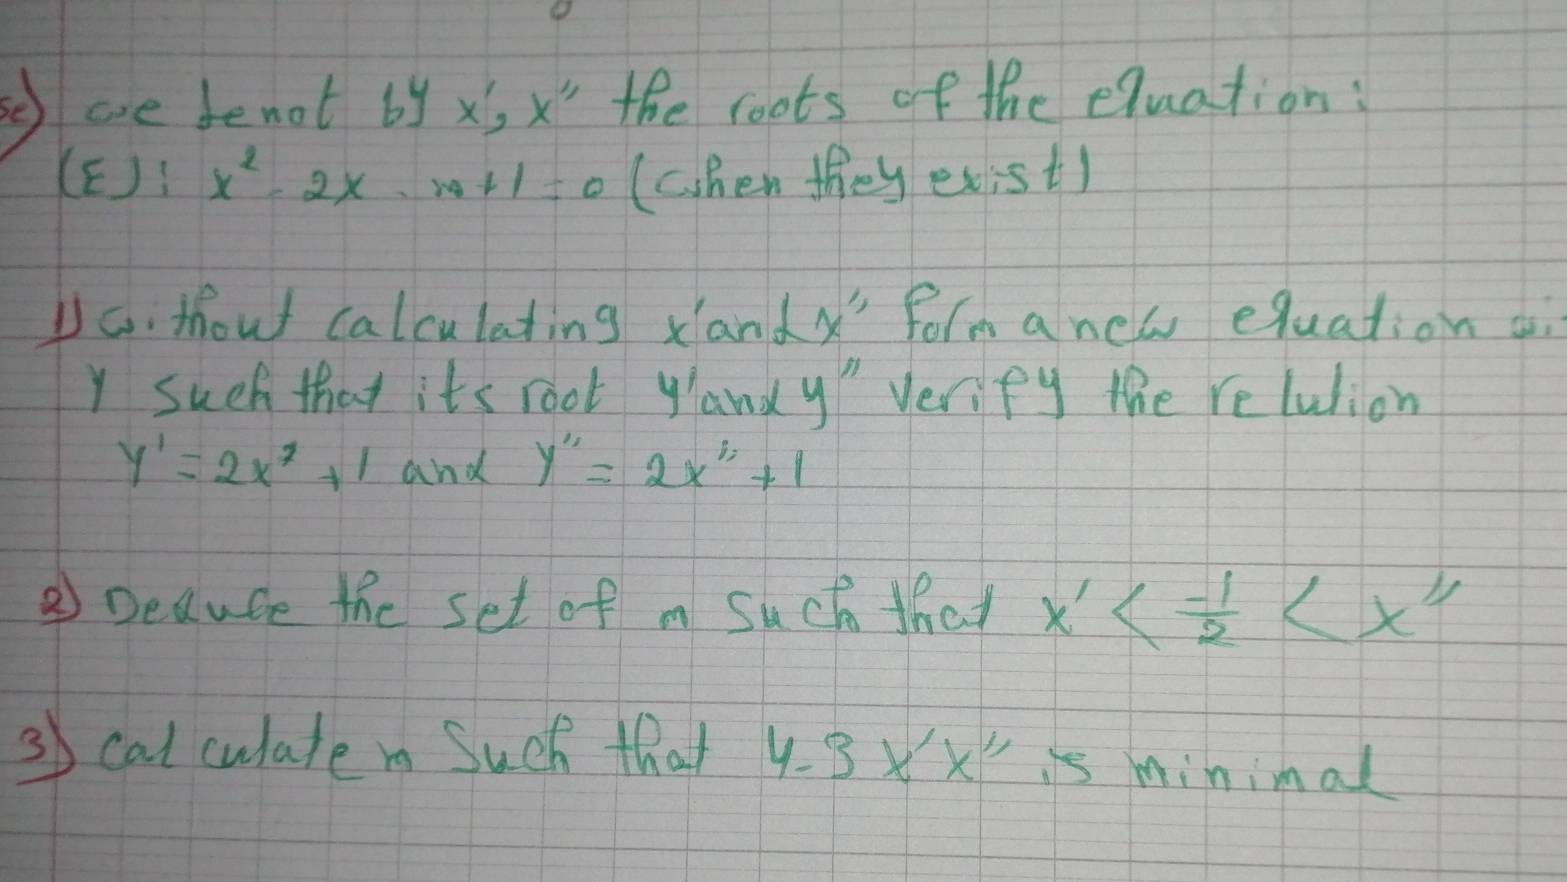 we denot by x', x" the roots of the equation:
(E): x² - 2x - m + 1 = 0 (when they exist)
1) without calculating x' and x" form a new equation
y such that its root y' and y" verify the relution
y' = 2x' + 1 and y" = 2x" + 1
2) Deduce the set of m such that x' < -1/2 < x"
3) calculate m such that 4-3x'x" is minimal